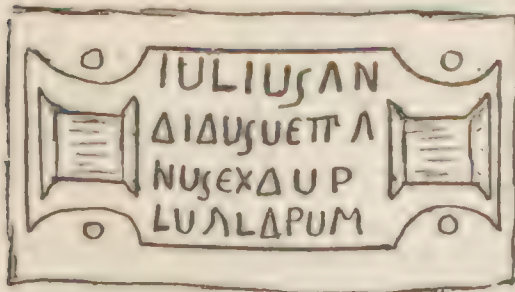 IULIUSΛN
ΔIΔUSUETTΛ
NUSEXΔUP
LUΛLΔPUM